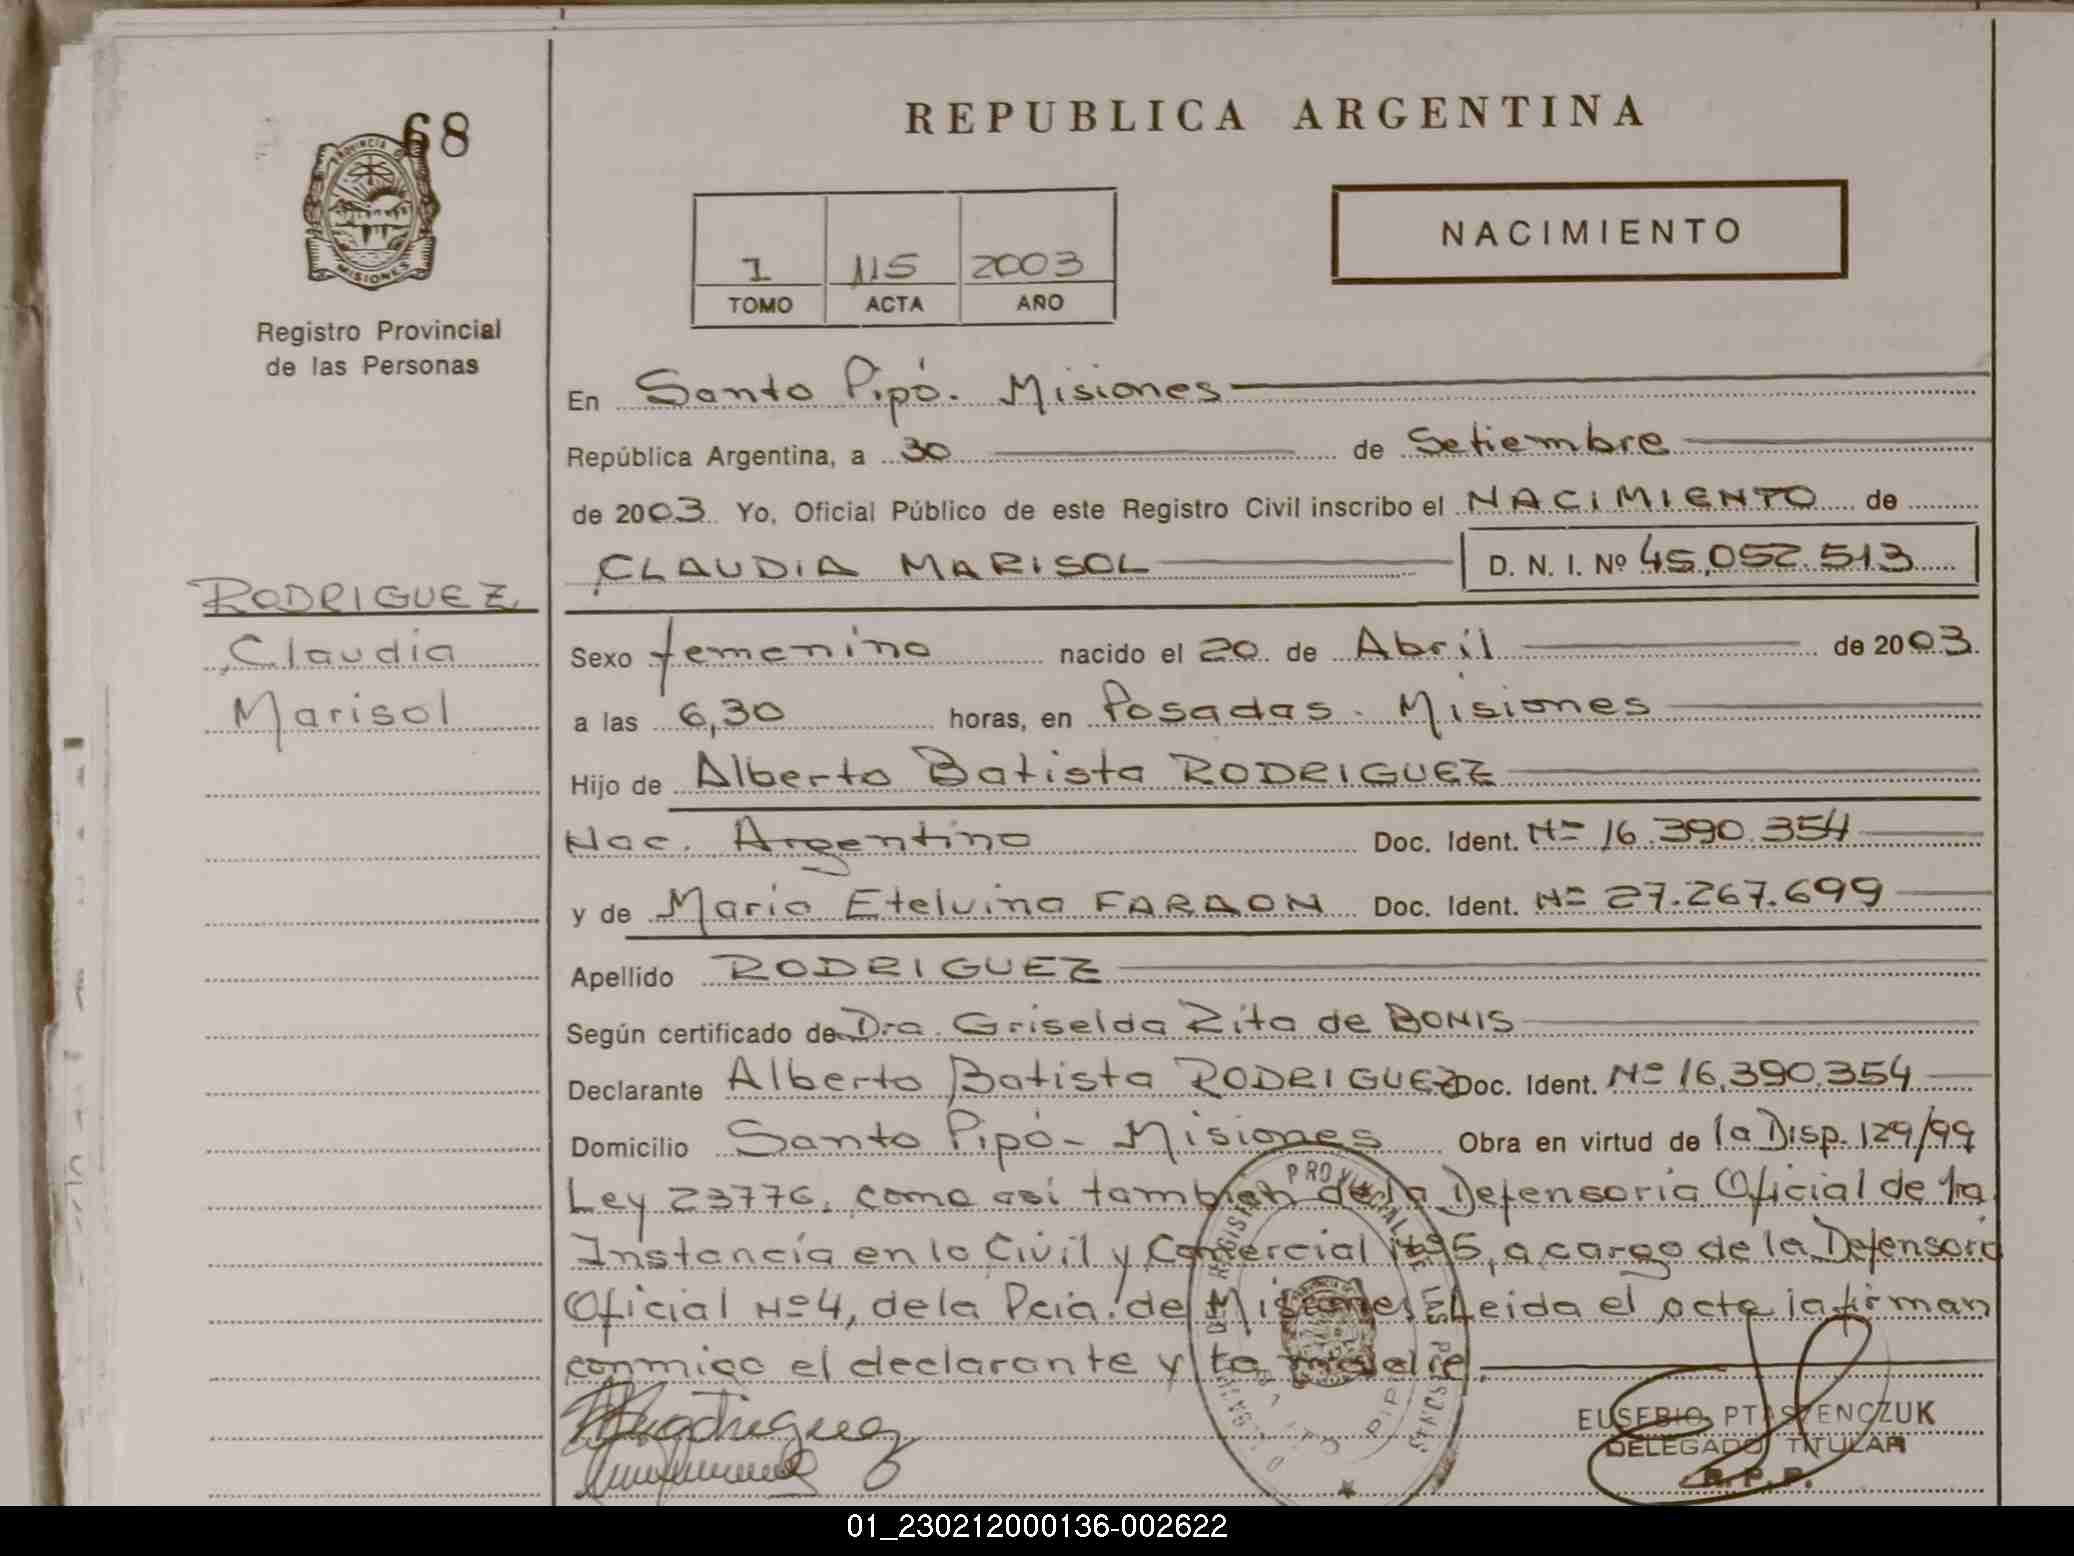 68
REPUBLICA ARGENTINA
PROVINCIA DE
MISIONES
Registro Provincial
de las Personas
1 115 2003
TOMO ACTA AÑO
NACIMIENTO
En Santo Pipó. Misiones
República Argentina, a 30 de Setiembre
de 2003 Yo, Oficial Público de este Registro Civil inscribo el NACIMIENTO de
CLAUDIA MARISOL D. N. I. Nº 45.052.513
RODRIGUEZ
Claudia
Marisol
Sexo femenino nacido el 20 de Abril de 2003
a las 6,30 horas, en Posadas. Misiones
Hijo de Alberto Batista RODRIGUEZ
Nac. Argentino Doc. Ident. Nº 16.390.354
y de Maria Etelvina FARAON Doc. Ident. Nº 27.267.699
Apellido RODRIGUEZ
Según certificado de Dra. Griselda Rita de BONIS
Declarante Alberto Batista RODRIGUEZ Doc. Ident. Nº 16.390.354
Domicilio Santo Pipó- Misiones Obra en virtud de la Disp. 129/99
Ley 23776, como asi tambien de la Defensoria Oficial de 1ra
Instancia en lo Civil y Comercial Nº5, a cargo de la Defensora
Oficial Nº4, de la Pcia. de Misiones. Leida el acta la firman
conmigo el declarante y la madre.
REGISTRO PROVINCIAL DE LAS PERSONAS
EUSEBIO PTASZENCZUK
DELEGADO TITULAR
R.P.P.
01_230212000136-002622